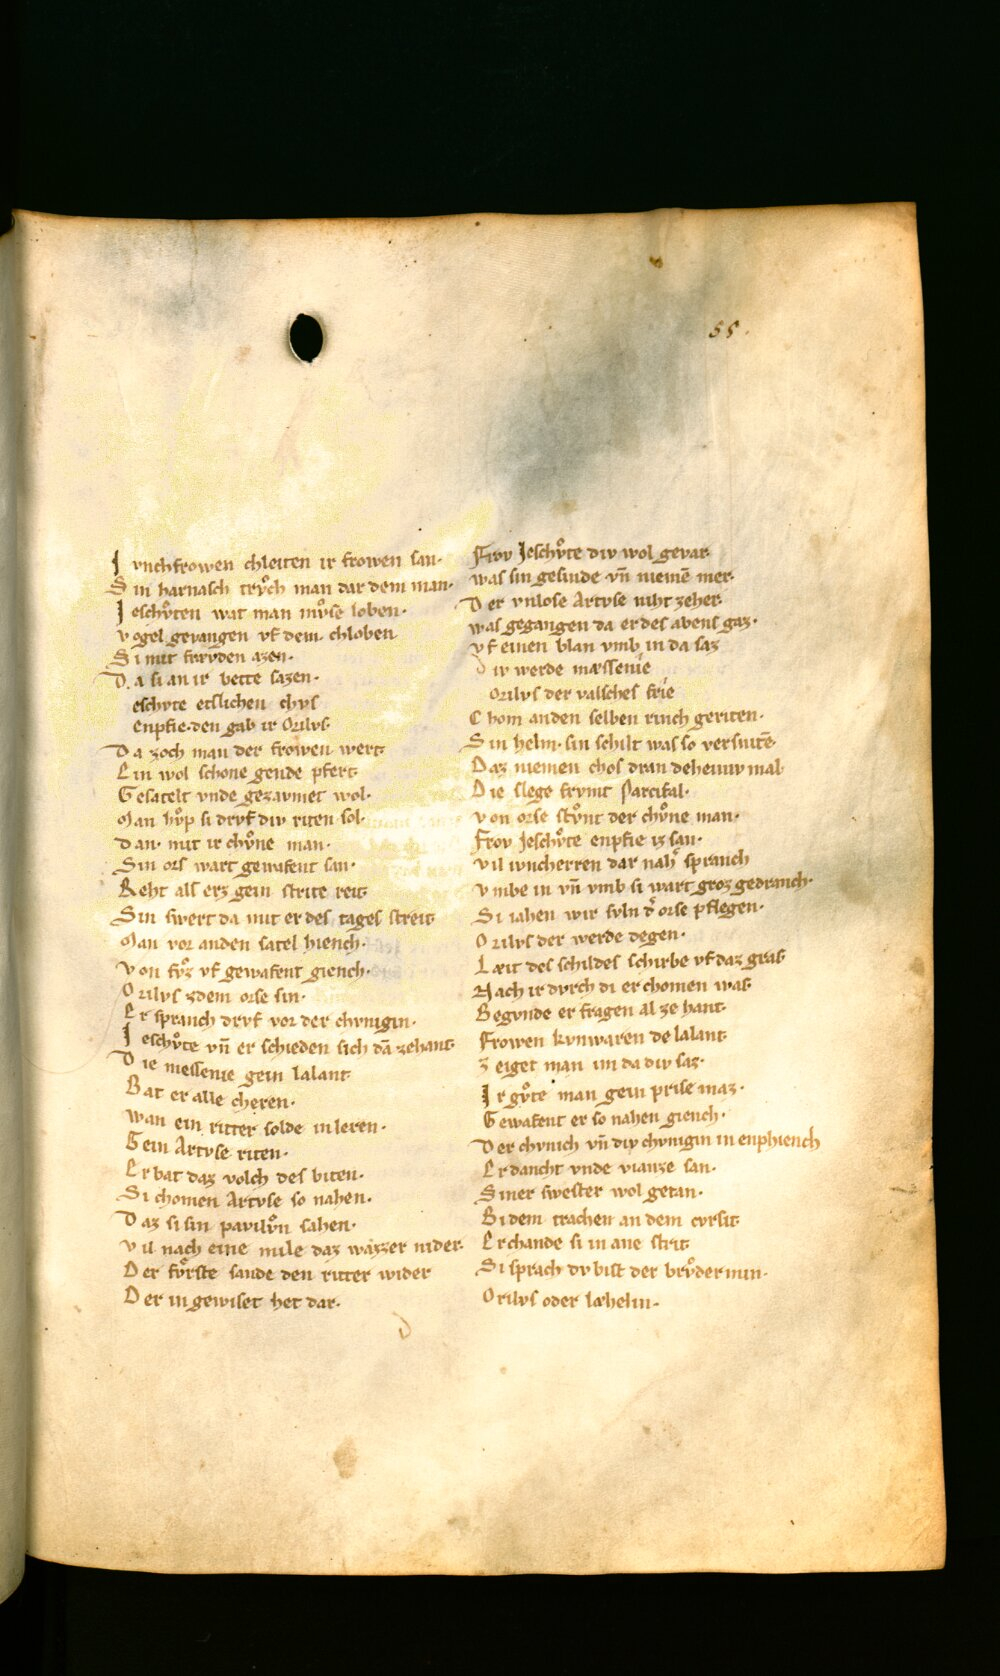 55.
J vnchfrowen chleiten ir frowen san·
S in harnasch trvͦch man dar dem man·
J eschvͦten wat man mvͦse loben·
v ogel gevangen vf dem chloben
S i mit frævden azen·
D a si an ir bette sazen·
eschvte etslichen chvs
enpfie·den gab ir Orilvs·
D a zoch man der frowen wert
E in wol schone gende pfert
G esatelt vnde gezavmet wol·
M an hvͦp si drvf div riten sol·
d an· mit ir chvͦne man·
S in ors wart gewafent san·
R eht als erz gein strite reit
S in swert da mit er des tages streit
M an vor anden satel hiench·
v on fvͦz vf gewafent giench·
O rilvs zdem orse sin·
E r spranch drvf vor der chvnigin·
J eschvͦte vñ er schieden sich dã zehant
D ie messenie gein lalant
B at er alle cheren·
wan ein ritter solde in leren·
G ein Artvse riten·
E r bat daz volch des biten·
S i chomen Artvse so nahen·
D az si sin pavilvͦn sahen·
v il nach eine mile daz wazzer nider·
D er fvͦrste sande den ritter wider
D er in gewiset het dar·
Frov Jeschvͦte div wol gevar
was sin gesinde vñ niemẽ mer·
D er vnlose Artvse niht zeher
was gegangen da er des abens gaz·
vf einen blan vmb in da saz
D iv werde mæssenie
Orilvs der valsches frie
C hom anden selben rinch geriten·
S in helm· sin schilt was so versnitẽ
D az niemen chos dran deheiniv mal
D ie slege frvmt Parcifal·
v on orse stvͦnt der chvͦne man·
Frov Jeschvͦte enpfie iz san·
vil ivncherren dar nah spranch
v mbe in vñ vmb si wart groz gedranch·
S i iahen wir svln ð orse pflegen·
O rilvs der werde degen·
L æit des schildes schirbe vf daz gras
N ach ir dvrch di er chomen was
B egvnde er fragen al ze hant
Frowen kvnwaren de lalant
z eiget man im da div saz·
J r gvͦte man gein prise maz·
G ewafent er so nahen giench·
D er chvnich vñ div chvnigin in enphiench
E r dancht vnde vianze san·
S iner swester wol getan·
B i dem trachen an dem cvrsit
E r chande si in ane strit
S i sprach dv bist der brvͦder min·
O rilvs oder læhelin·